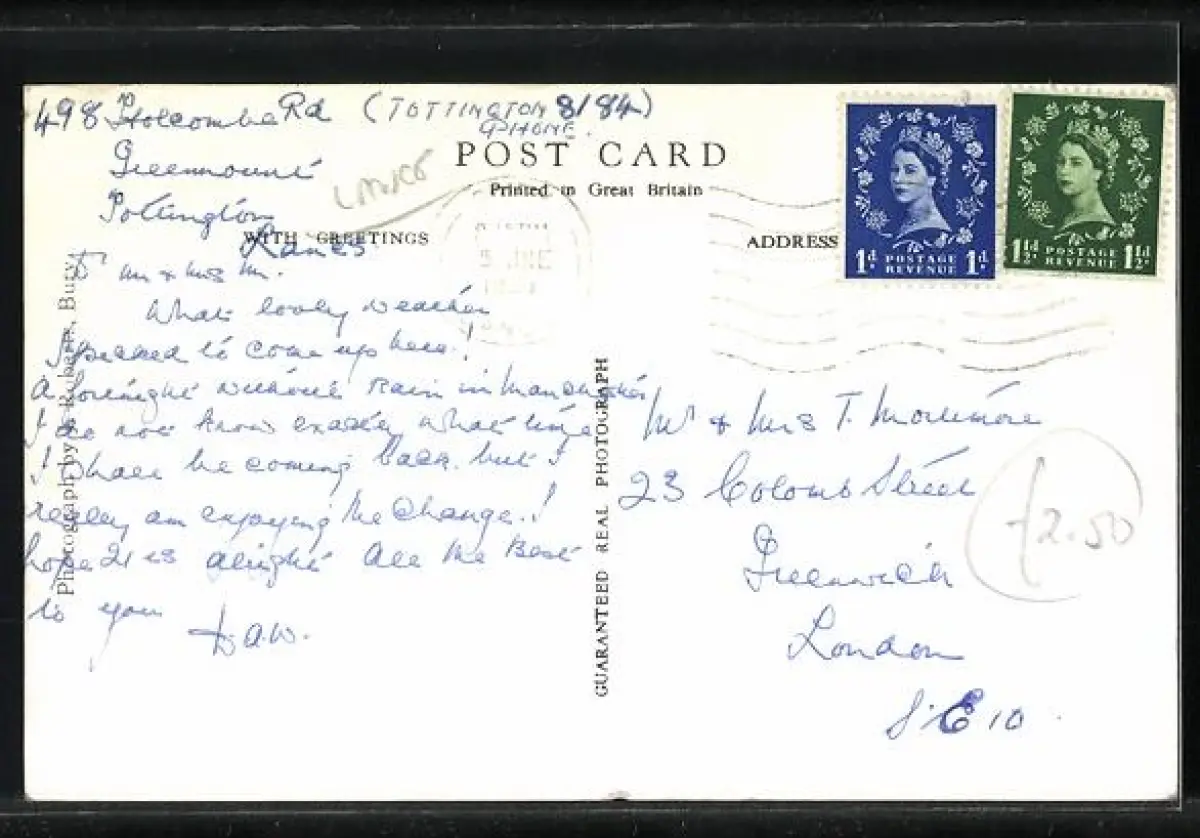 498 Holcombe Rd (TOTTINGTON 8184)
PHONE.
Greenmount
Tottington
Lancs
LANCS
POST CARD
Printed in Great Britain
WITH GREETINGS
ADDRESS
1d. POSTAGE REVENUE 1d.
1½d. POSTAGE REVENUE 1½d.
5 JNE
D Mr & Mrs M.
What lovely weather
I picked to come up here!
A fortnight without Rain in Manchester
I do not know exactly what time
I shall be coming back. but I
really am enjoying the change. I
hope 21 is alright All the Best
to you
D.A.W.
Photograph by Bury
GUARANTEED REAL PHOTOGRAPH
Mr & Mrs T. Mortimore
23 Colomb Street
Greenwich
London
S.E 10.
£2.50